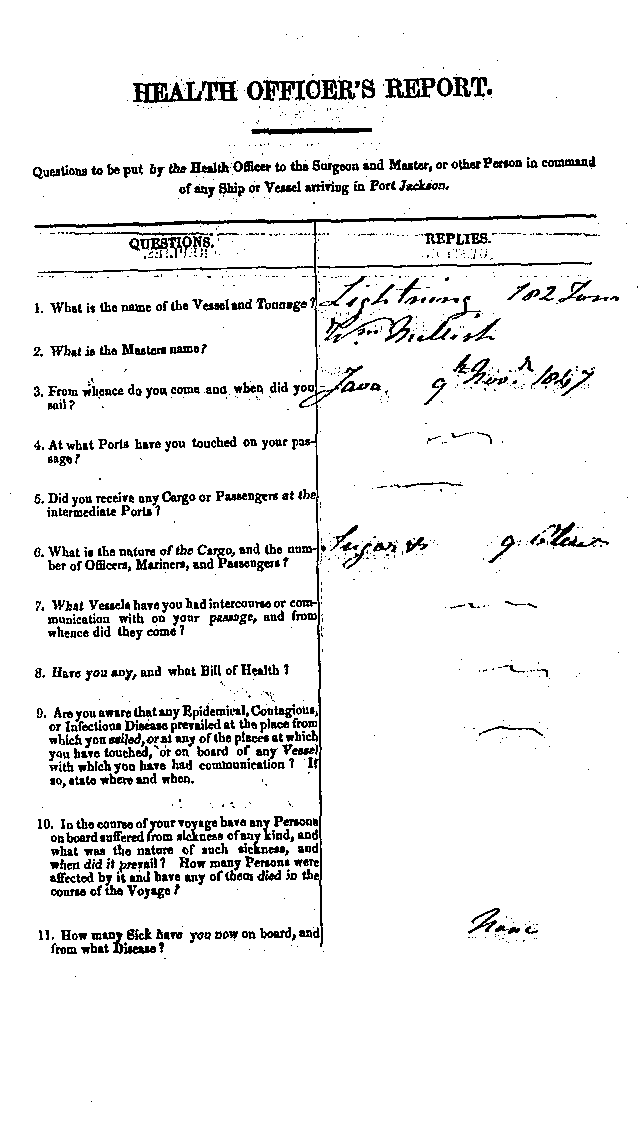 HEALTH OFFICER'S REPORT.
Questions to be put by the Health Officer to the Surgeon and Master, or other Person in command
of any Ship or Vessel arriving in Port Jackson.
QUESTIONS.
REPLIES.
1. What is the name of the Vessel and Tonnage?
Lightning 182 Tons
2. What is the Masters name?
Wm Mellish
3. From whence do you come and when did you
sail?
Java 9th Novr 1847
4. At what Ports have you touched on your pas-
sage?
5. Did you receive any Cargo or Passengers at the
intermediate Ports?
6. What is the nature of the Cargo, and the num-
ber of Officers, Mariners, and Passengers?
Sugar 9
7. What Vessels have you had intercourse or com-
munication with on your passage, and from
whence did they come?
8. Have you any, and what Bill of Health?
9. Are you aware that any Epidemical, Contagious,
or Infectious Disease prevailed at the place from
which you sailed, or at any of the places at which
you have touched, or on board of any Vessel
with which you have had communication? If
so, state where and when.
10. In the course of your voyage have any Persons
on board suffered from sickness of any kind, and
what was the nature of such sickness, and
when did it prevail? How many Persons were
affected by it and have any of them died in the
course of the Voyage?
11. How many Sick have you now on board, and
from what Disease?
None